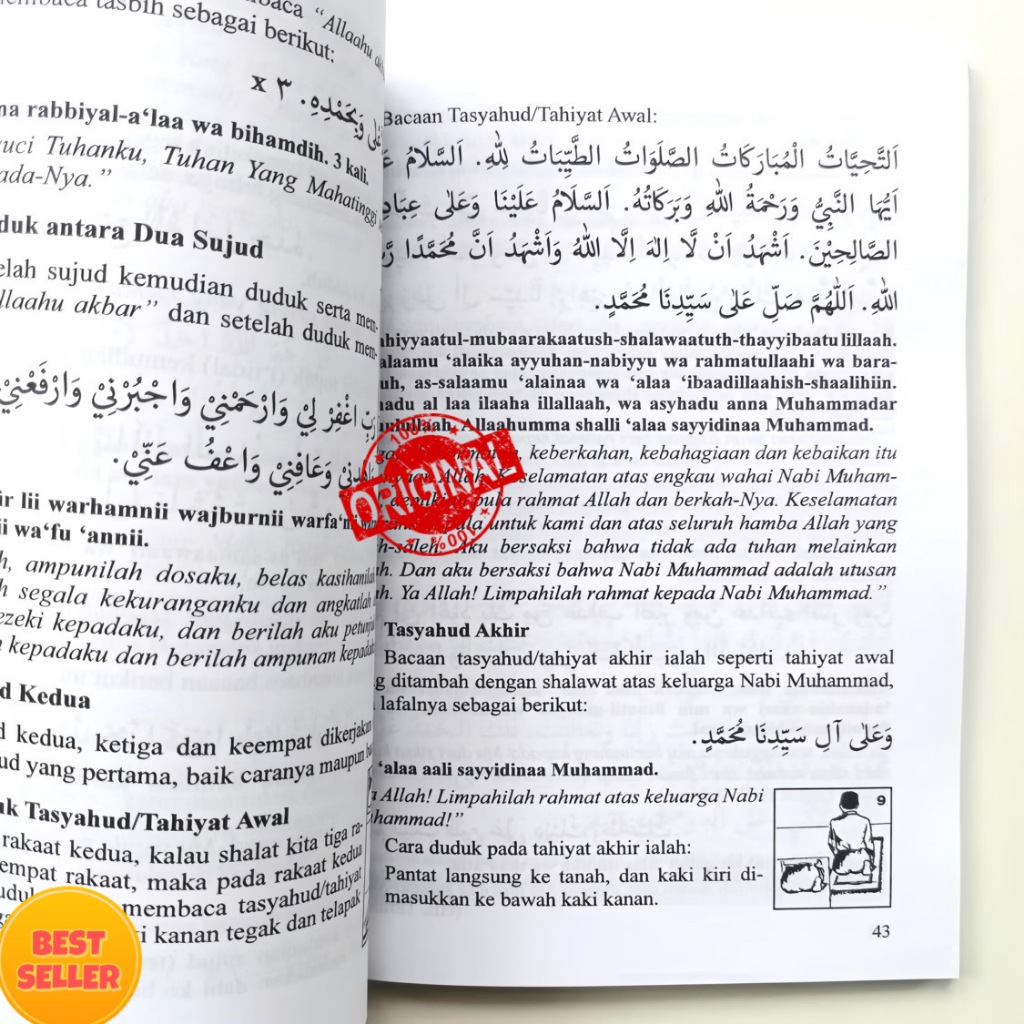 membaca tasbih sebagai berikut:
baca "Allaahu
وَبِحَمْدِهِ. ٣ x
rabbiyal-a‘laa wa bihamdih. 3 kali.
Tuhanku, Tuhan Yang Mahatinggi
duk antara Dua Sujud
elah sujud kemudian duduk serta mem-
llaahu akbar” dan setelah duduk mem-
رَبِّ اغْفِرْ لِيْ وَارْحَمْنِيْ وَاجْبُرْنِيْ وَارْفَعْنِيْ
وَعَافِنِيْ وَاعْفُ عَنِّيْ.
lii warhamnii wajburnii warfa‘nii
wa‘fu ‘annii.
ampunilah dosaku, belas kasihanilah
segala kekuranganku dan angkatlah
ezeki kepadaku, dan berilah aku petunjuk
kepadaku dan berilah ampunan kepada
d Kedua
d kedua, ketiga dan keempat dikerjakan
ud yang pertama, baik caranya maupun
Tasyahud/Tahiyat Awal
rakaat kedua, kalau shalat kita tiga ra-
empat rakaat, maka pada rakaat kedua
membaca tasyahud/tahiyat
kanan tegak dan telapak
Bacaan Tasyahud/Tahiyat Awal:
اَلتَّحِيَّاتُ الْمُبَارَكَاتُ الصَّلَوَاتُ الطَّيِّبَاتُ لِلّٰهِ. اَلسَّلَامُ
اَيُّهَا النَّبِيُّ وَرَحْمَةُ اللهِ وَبَرَكَاتُهُ. اَلسَّلَامُ عَلَيْنَا وَعَلٰى عِبَادِ
الصَّالِحِيْنَ. اَشْهَدُ اَنْ لَّا اِلٰهَ اِلَّا اللهُ وَاَشْهَدُ اَنَّ مُحَمَّدًا
اللهِ. اَللّٰهُمَّ صَلِّ عَلٰى سَيِّدِنَا مُحَمَّدٍ.
ahiyyaatul-mubaarakaatush-shalawaatuth-thayyibaatu lillaah.
alaamu ‘alaika ayyuhan-nabiyyu wa rahmatullaahi wa bara-
uh, as-salaamu ‘alainaa wa ‘alaa ‘ibaadillaahish-shaalihiin.
hadu al laa ilaaha illallaah, wa asyhadu anna Muhammadar
Allaahumma shalli ‘alaa sayyidinaa Muhammad.
keberkahan, kebahagiaan dan kebaikan itu
selamatan atas engkau wahai Nabi Muham-
pula rahmat Allah dan berkah-Nya. Keselamatan
untuk kami dan atas seluruh hamba Allah yang
h-saleh. Aku bersaksi bahwa tidak ada tuhan melainkan
h. Dan aku bersaksi bahwa Nabi Muhammad adalah utusan
ah. Ya Allah! Limpahilah rahmat kepada Nabi Muhammad.”
Tasyahud Akhir
Bacaan tasyahud/tahiyat akhir ialah seperti tahiyat awal
g ditambah dengan shalawat atas keluarga Nabi Muhammad,
lafalnya sebagai berikut:
وَعَلٰى آلِ سَيِّدِنَا مُحَمَّدٍ.
‘alaa aali sayyidinaa Muhammad.
a Allah! Limpahilah rahmat atas keluarga Nabi
hammad!”
Cara duduk pada tahiyat akhir ialah:
Pantat langsung ke tanah, dan kaki kiri di-
masukkan ke bawah kaki kanan.
9
43
100%
ORIGINAL
100%
BEST
SELLER